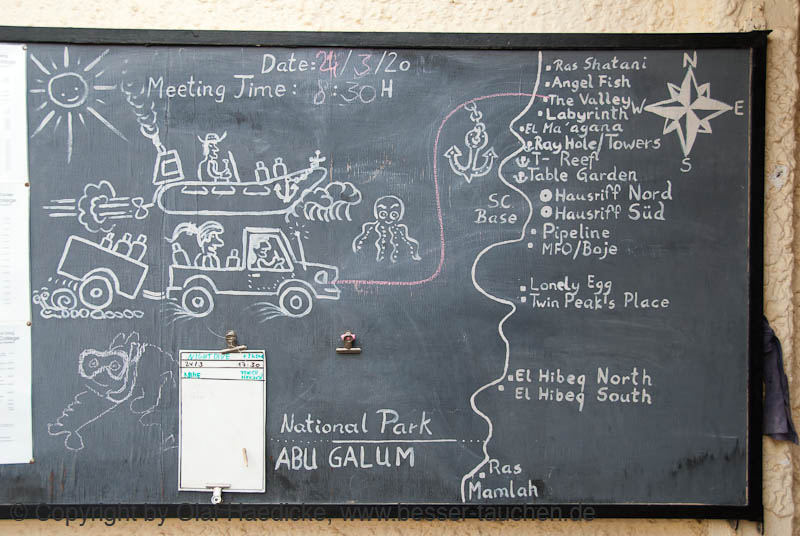 Date: 24/3/20
Meeting Time: 8:30 H
N
W
E
S
Ras Shatani
Angel Fish
The Valley
Labyrinth
El Ma'agana
Ray Hole/Towers
T-Reef
Table Garden
Hausriff Nord
Hausriff Süd
SC
Base
Pipeline
MFO/Boje
Lonely Egg
Twin Peak's Place
El Hibeq North
El Hibeq South
NIGHT DIVE
24/3 17:30
NAME
National Park
ABU GALUM
Ras
Mamlah
© Copyright by Olaf Haedicke, www.besser-tauchen.de